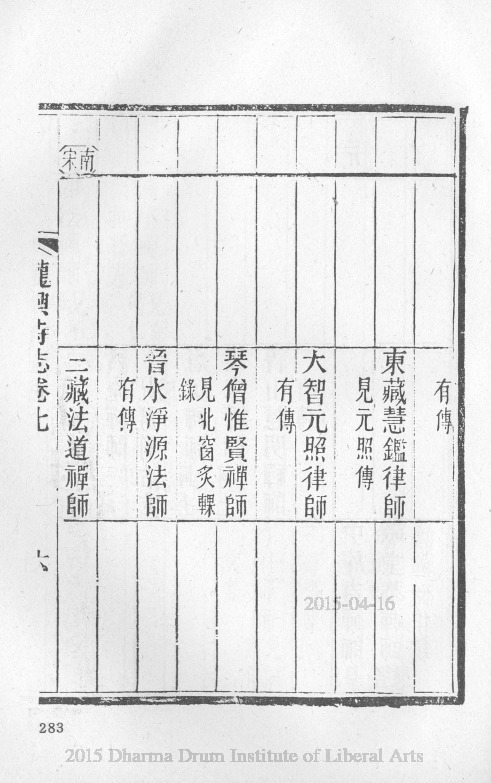 有傳
東藏慧鑑律師
見元照傳
大智元照律師
有傳
琴僧惟賢禪師
見北窗炙輠
錄
晉水淨源法師
有傳
南宋
三藏法道禪師
龍興寺志卷七
六
2015-04-16
283
2015 Dharma Drum Institute of Liberal Arts